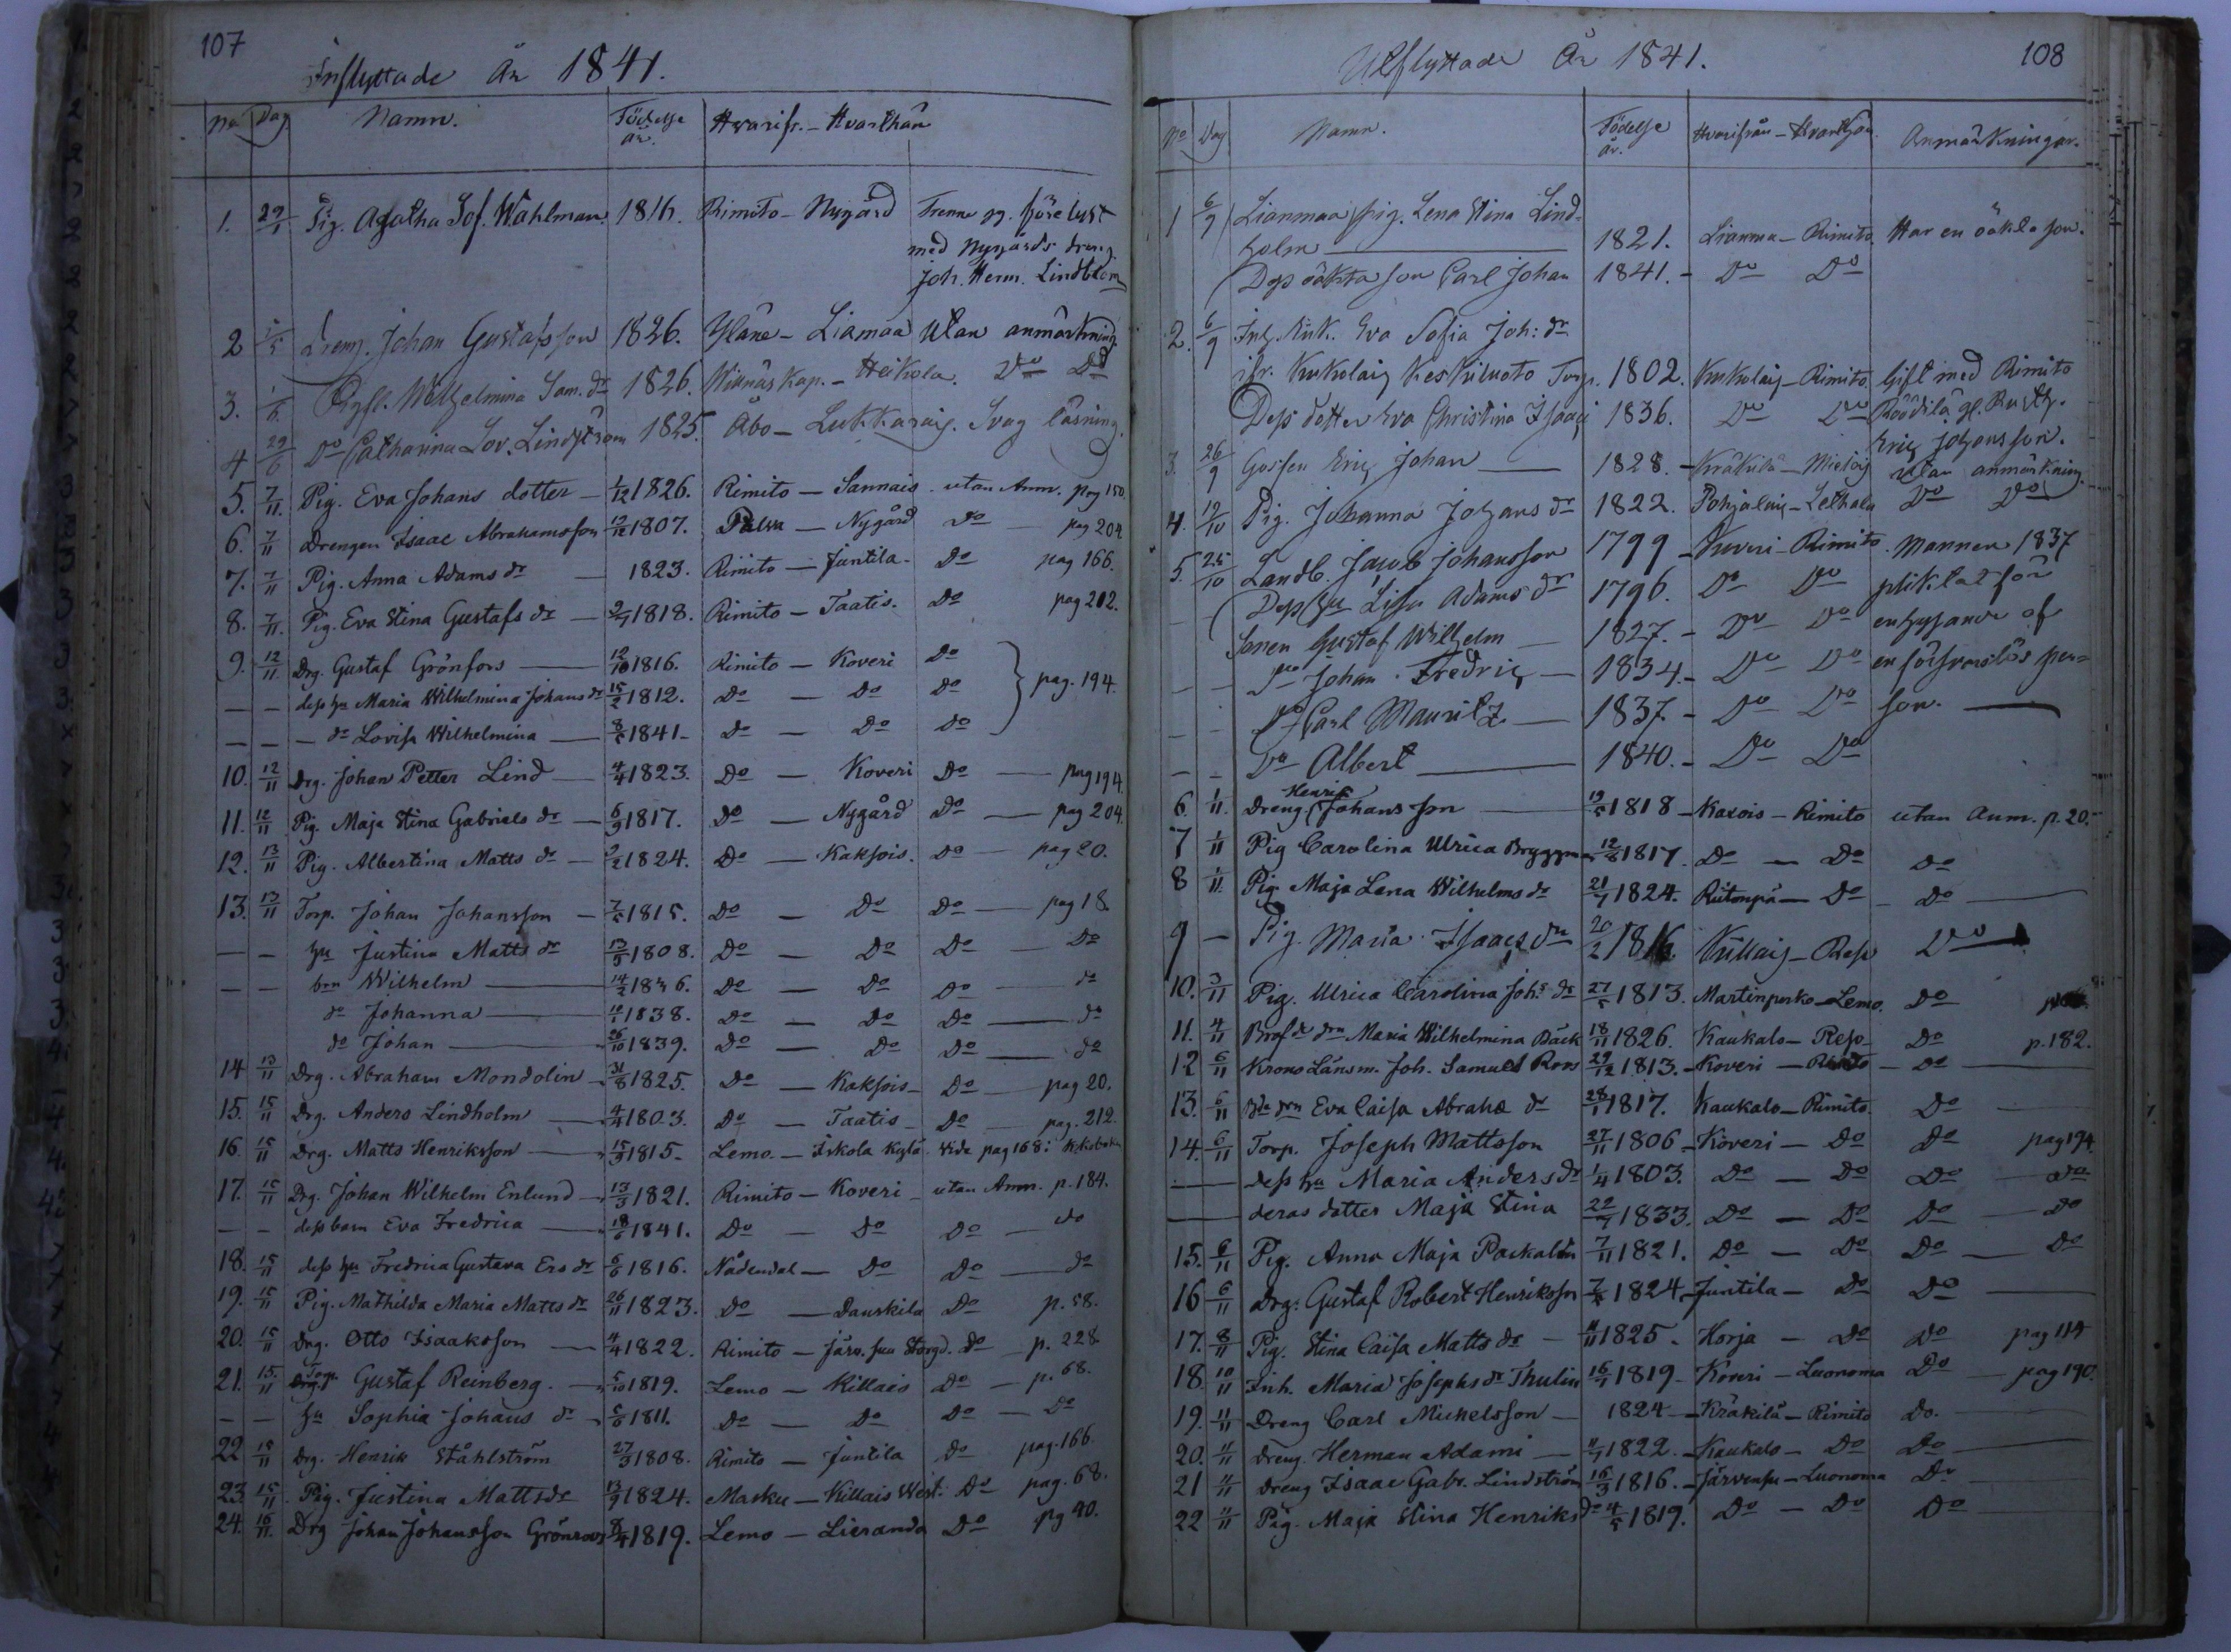 107
Inflyttade År 1841.
No Dag Namn. Födelse år. Hvarifr. - Hvarthän
1. 29/1 Pig. Agatha Sof. Wahlman. 1816. Rimito - Nygård Trenne gg. före lyst
med Nygårds dreng.
Joh. Herm. Lindblom
2 Dreng. Johan Gustafsson 1826. Yläne - Liamaa utan anmärkning.
3. 1/6 Wilhelmina Sam. dr 1826. Wiknäs Kap. - Heikola. Do Do
4 29/6 Do Catharina Lov. Lindström 1825. Åbo - Lukkaraig. Svag läsning.
5. 7/11. Pig. Eva Johans dotter - 1/12 1826. Rimito - Sannais utan Anm. pag 150.
6. 7/11 Drengen Isaac Abrahamsson 12/12 1807. Palva - Nygård Do pag 204
7. 7/11 Pig. Anna Adams dr - 1823. Rimito - Juntila - Do pag 166.
8. 7/11. Pig. Eva Stina Gustafs dr - 2/7 1818. Rimito - Taatis. Do pag 212.
9. 12/11 Drg. Gustaf Grönfors - 12/10 1816. Rimito - Koveri Do
- - dess hu Maria Wilhelmina Johans dr 15/2 1812. Do - Do Do pag. 194.
- - - do Lovisa Wilhelmina - 8/5 1841 - Do - Do Do
10. 12/11 Drg. Johan Petter Lind - 4/4 1823. Do - Koveri Do - pag 194
11. 12/11 Pig. Maja Stina Gabriels dr - 6/9 1817. Do - Nygård Do - pag 204.
12. 13/11 Pig. Albertina Matts dr - 2/2 1824. Do - Kaksois. Do - pag 20.
13. 13/11 Torp. Johan Johansson - 7/5 1815. Do - Do Do - pag 18.
- - hu Justina Matts dr 13/5 1808. Do - Do Do - Do
- - brn Wilhelm - 14/2 1836. Do - Do Do - do
do Johanna - 1838. Do - Do Do - do
do Johan - 26/10 1839. Do - Do Do - do
14 13/11 Drg. Abraham Mondolin - 31/8 1825. Do - Kaksois - Do - pag 20.
15. 15/11 Drg. Anders Lindholm - 4/4 1803. Do - Taatis - Do - pag. 212.
16. 15/11 Drg. Matts Henriksson - 15/3 1815 - Lemo. - Iskola Kylä. vide pag 168: Kyrkoboken
17. 15/11 Drg. Johan Wilhelm Enlund - 13/3 1821. Rimito - Koveri - utan Anm. p. 184.
- - dess barn Eva Fredrica - 18/6 1841. Do - Do Do - do
18. 15/11 dess hu Fredrica Gustava Ers dr 6/6 1816. Nådendal - Do Do - do
19. 15/11 Pig. Mathilda Maria Matts dr 26/11 1823. Do - Danskila Do p. 58.
20. 15/11 Drg. Otto Isaaksson - 4/4 1822. Rimito - Järv. suu Storgd. Do p. 228
21. 15/11 Torp. Gustaf Reinberg. - 5/10 1819. Lemo - Killais Do - p. 68.
- - hu Sophia Johans dr - 5/6 1811. Do - Do Do - Do
22 15/11 Drg. Henrik Ståhlström 27/3 1808. Rimito - Juntila Do pag. 166.
23. 15/11 Pig. Justina Matts dr 13/9 1824. Masku - Killais West. Do pag. 68.
24. 16/11. Drg Johan Johansson Grönroos 1819. Lemo - Lieranda Do pg 90.
108
Utflyttade År 1841.
No Dag Namn. Födelse år. Hvarifrån - Hvarthän. Anmärkningar.
1 6/9 Lianmaa pig. Lena Stina Lind-
holm - 1821. Lianma - Rimito. Har en oäkta son.
Dess oäkta son Carl Johan 1841. - Do Do
2. 6/9 Inh. Enk. Eva Sofia Joh: dr
ifr. Kukolaig Keskiluoto Torp. 1802. Kukolaig - Rimito. Gift med Rimito
Dess dotter Eva Christina Isaacs 1836. Do Do Röödilä gl. Rusth.
Eric Johansson.
3. 26/9 Gossen Eric Johan - 1828. - Kräkilä - Mietois utan anmärkning.
4. 12/10 Pig. Johanna Johans dr 1822. Pohjalaig - Lethala Do Do
5. 25/10 Landb. Jacob Johansson 1799 - Kuveri - Rimito. Mannen 1837
Dess hu Lisa Adams dr 1796. Do Do pliktat för
Sonen Gustaf Wilhelm - 1827. - Do Do enhysande af
- - Do Johan Fredric - 1834. - Do Do en försvarslös per=
- - Do Carl Mauritz - 1837. - Do Do son. -
- - Do Albert - 1840. - Do Do
6. 1/11. Dreng. Henrik Johansson - 19/5 1818 - Kaxois - Rimito utan Anm. p. 20.
7 1/11 Pig Carolina Ulrica Bryggman 12/8 1817. Do - Do Do
8 1/11. Pig. Maja Lena Wilhelms dr 21/7 1824. Riitonpä - Do - Do -
9 - Pig. Maria Isaacs dr 20/2 1816. Killaig - Reso Do
10. 3/11 Pig. Ulrica Carolina Johs dr 27/5 1813. Martinperko - Lemo. Do
11. 4/11 Maria Wilhelmina Bäck 18/11 1826. Kaukalo - Reso - Do p. 182.
12 6/11 Krono Länsm. Joh. Samuel Roos 29/12 1813. - Koveri - Rimito - Do
13. 6/11 Eva Caisa Abrahs dr 28/1 1817. Kaukalo - Rimito Do
14. 6/11 Torp. Joseph Mattsson 27/11 1806 - Koveri - Do Do pag 194.
- dess hu Maria Anders dr 1/4 1803. Do - Do Do - Do
- deras dotter Maja Stina 22/7 1833. Do - Do Do - Do
15. 6/11 Pig. Anna Maja Packalén 7/11 1821. Do - Do Do - Do
16 6/11 Drg. Gustaf Robert Henriksson 1824 - Juntila - Do Do -
17. 8/11 Pig. Stina Caisa Matts dr - 1825 - Horja - Do Do pag 114
18. 10/11 Inh. Maria Josephs dr Thulin 16/7 1819 - Koveri - Luonoma Do - pag 190.
19. 11/11 Dreng Carl Mickelsson - 1824 - Kräkilä - Rimito Do.
20. 11/11 Dreng. Herman Adami - 1822. - Kaukalo - Do Do
21 11/11 Dreng Isaac Gabr. Lindström 16/3 1816. - Järvensu - Luonoma Do
22 11/11 Pig. Maja Stina Henriks dr 4/5 1819. Do - Do Do